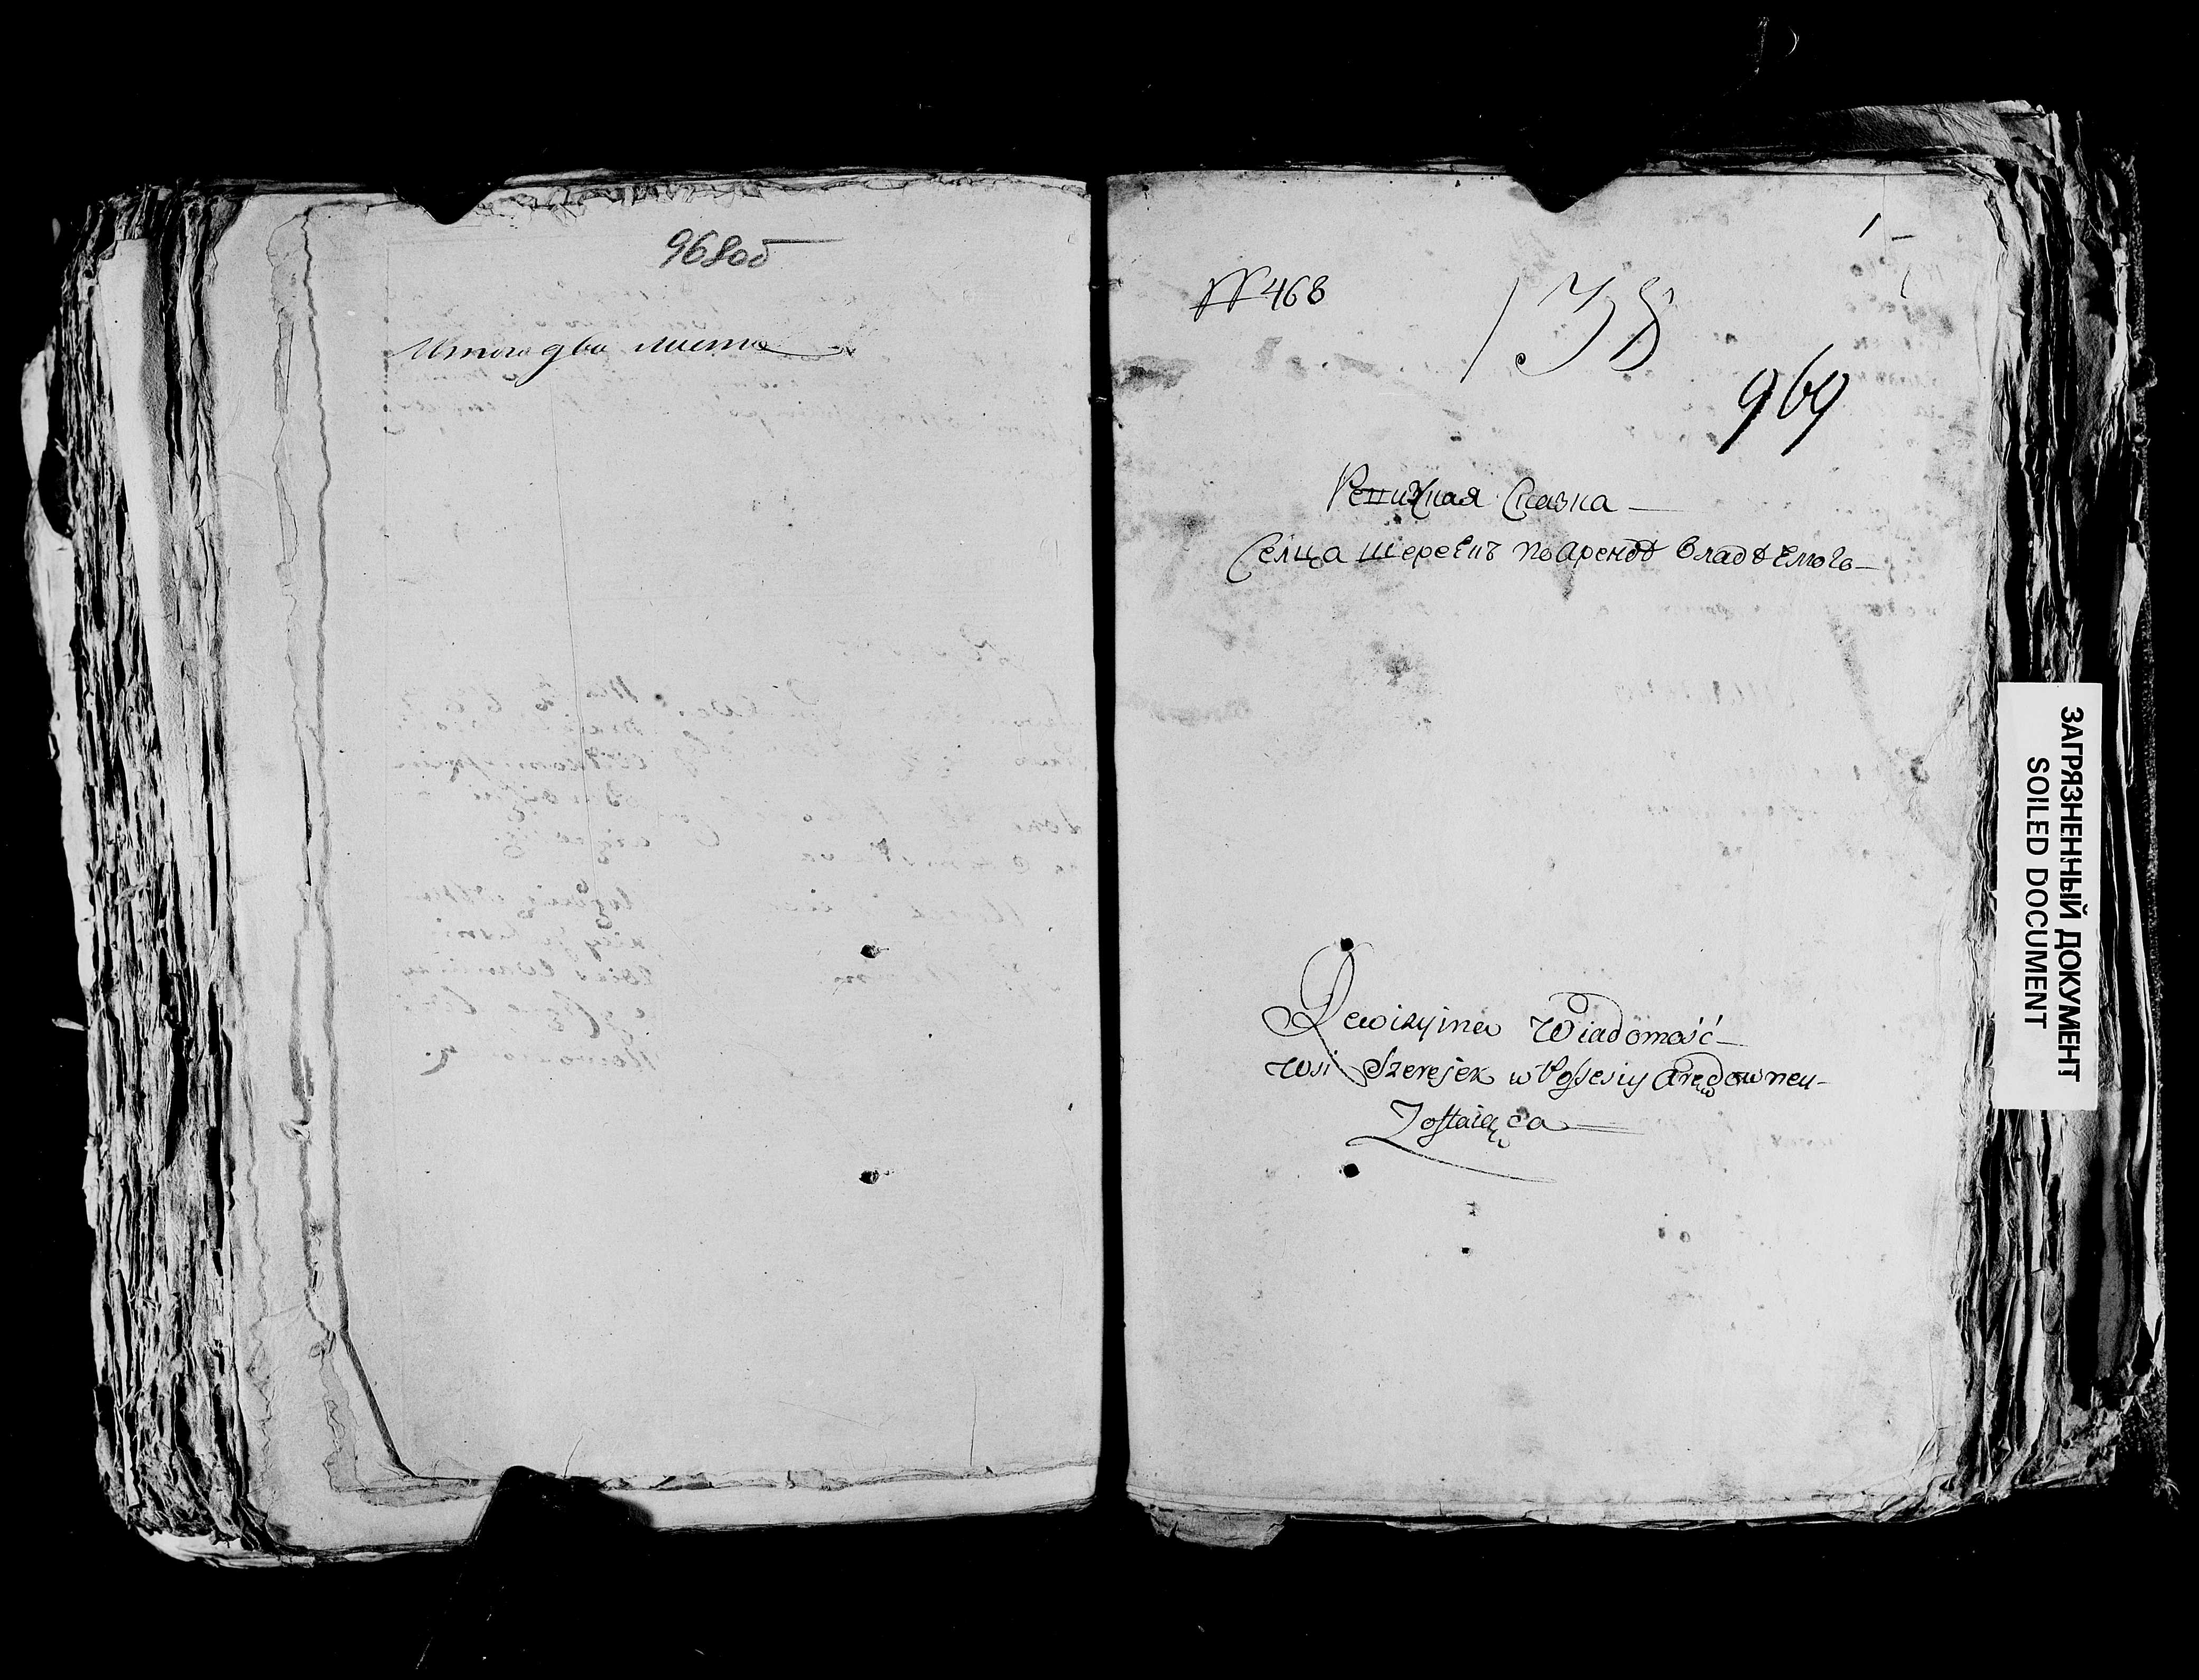 968об
Итого два листа
№ 468
138
969
Ревизкая Сказка
Селца шереекъ по арендѣ владѣемого
Rewizyjna Wiadomość
Wsi Szerejek w Possesiy Arędowney
Zostaiąca
ЗАГРЯЗНЕННЫЙ ДОКУМЕНТ
SOILED DOCUMENT